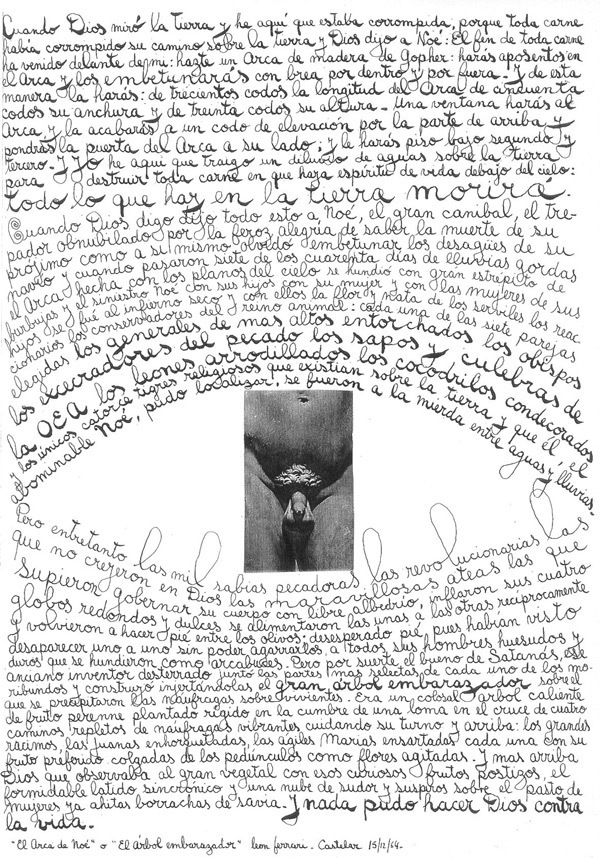 Cuando Dios miró la tierra y he aquí que estaba corrompida; porque toda carne
había corrompido su camino sobre la tierra y Dios dijo a Noé: El fin de toda carne
ha venido delante de mi: hazte un Arca de madera de Gopher: harás aposentos en
el Arca y los embetunarás con brea por dentro y por fuera. Y de esta
manera la harás: de trecientos codos la longitud del Arca de cincuenta
codos su anchura y de treinta codos su altura. Una ventana harás al
Arca, y la acabarás a un codo de elevación por la parte de arriba y
pondrás la puerta del Arca a su lado; y le harás piso bajo segundo y
tercero. Y Yo he aquí que traigo un diluvio de aguas sobre la tierra
para destruir toda carne en que haza espíritu de vida debajo del cielo:
todo lo que hay en la tierra morirá.
Cuando Dios digo dijo todo esto a Noé, el gran canibal, el tre-
pador obnubilado por la feroz alegría de saber la muerte de su
prójimo como a su mismo, olvidó embetunar los desagües de su
navío y cuando pasaron siete de los cuarenta días de lluvias gordas
el Arca hecha con los planos del cielo se hundió con gran estrépito de
burbujas y el siniestro Noé con sus hijos con su mujer y con las mujeres de sus
hijos se fué al infierno seco y con ellos la flor y nata de los serviles los reac
cionarios los conservadores del reino animal: cada una de las siete parejas
elegidas los generales de mas altos entorchados los obispos
los execradores del pecado los sapos y culebras de
la OEA los leones arrodillados los cocodrilos condecorados
y los únicos catorce tigres religiosos que existían sobre la tierra y que él, el
abominable Noé, pudo localizar, se fueron a la mierda entre aguas y lluvias.
Pero entretanto las mil sabias pecadoras las revolucionarias las
que no creyeron en Dios las maravillosas ateas las que
supieron gobernar su cuerpo con libre albedrío, inflaron sus cuatro
globos redondos y dulces se alimentaron las unas a las otras recíprocamente
y volvieron a hacer pié entre los olivos: desesperado pié, pues habían visto
desaparecer uno a uno sin poder agarrarlos, a todos sus hombres huesudos y
duros que se hundieron como arcabuces. Pero por suerte, el bueno de Satanás, ese
anciano inventor desterrado juntó las partes mas selectas de cada uno de los mo-
ribundos y construyó injertándolas el gran árbol embarazador sobre el
que se precipitaron las náufragas sobrevivientes. Era un colosal árbol caliente
de fruto perenne plantado rígido en la cumbre de una loma en el cruce de cuatro
caminos repletos de náufragas vibrantes cuidando su turno y arriba: los grandes
racimos, las Juanas enhorquetadas, las ágiles Marías ensartadas cada una con su
fruto preferido colgadas de los pedúnculos como flores agitadas. Y mas arriba
Dios que observaba al gran vegetal con esos curiosos frutos postizos, el
formidable latido sincrónico y una nube de sudor y suspiros sobre el pasto de
mujeres ya ahitas borrachas de savia. Y nada pudo hacer Dios contra
la vida.
"El Arca de Noé" o "El Árbol embarazador" león ferrari - Castelar 15/12/64.